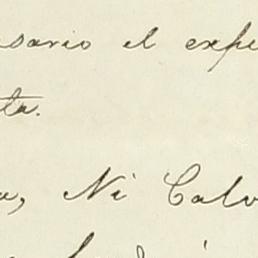 sario el expe
ta.
a, Ni Calv